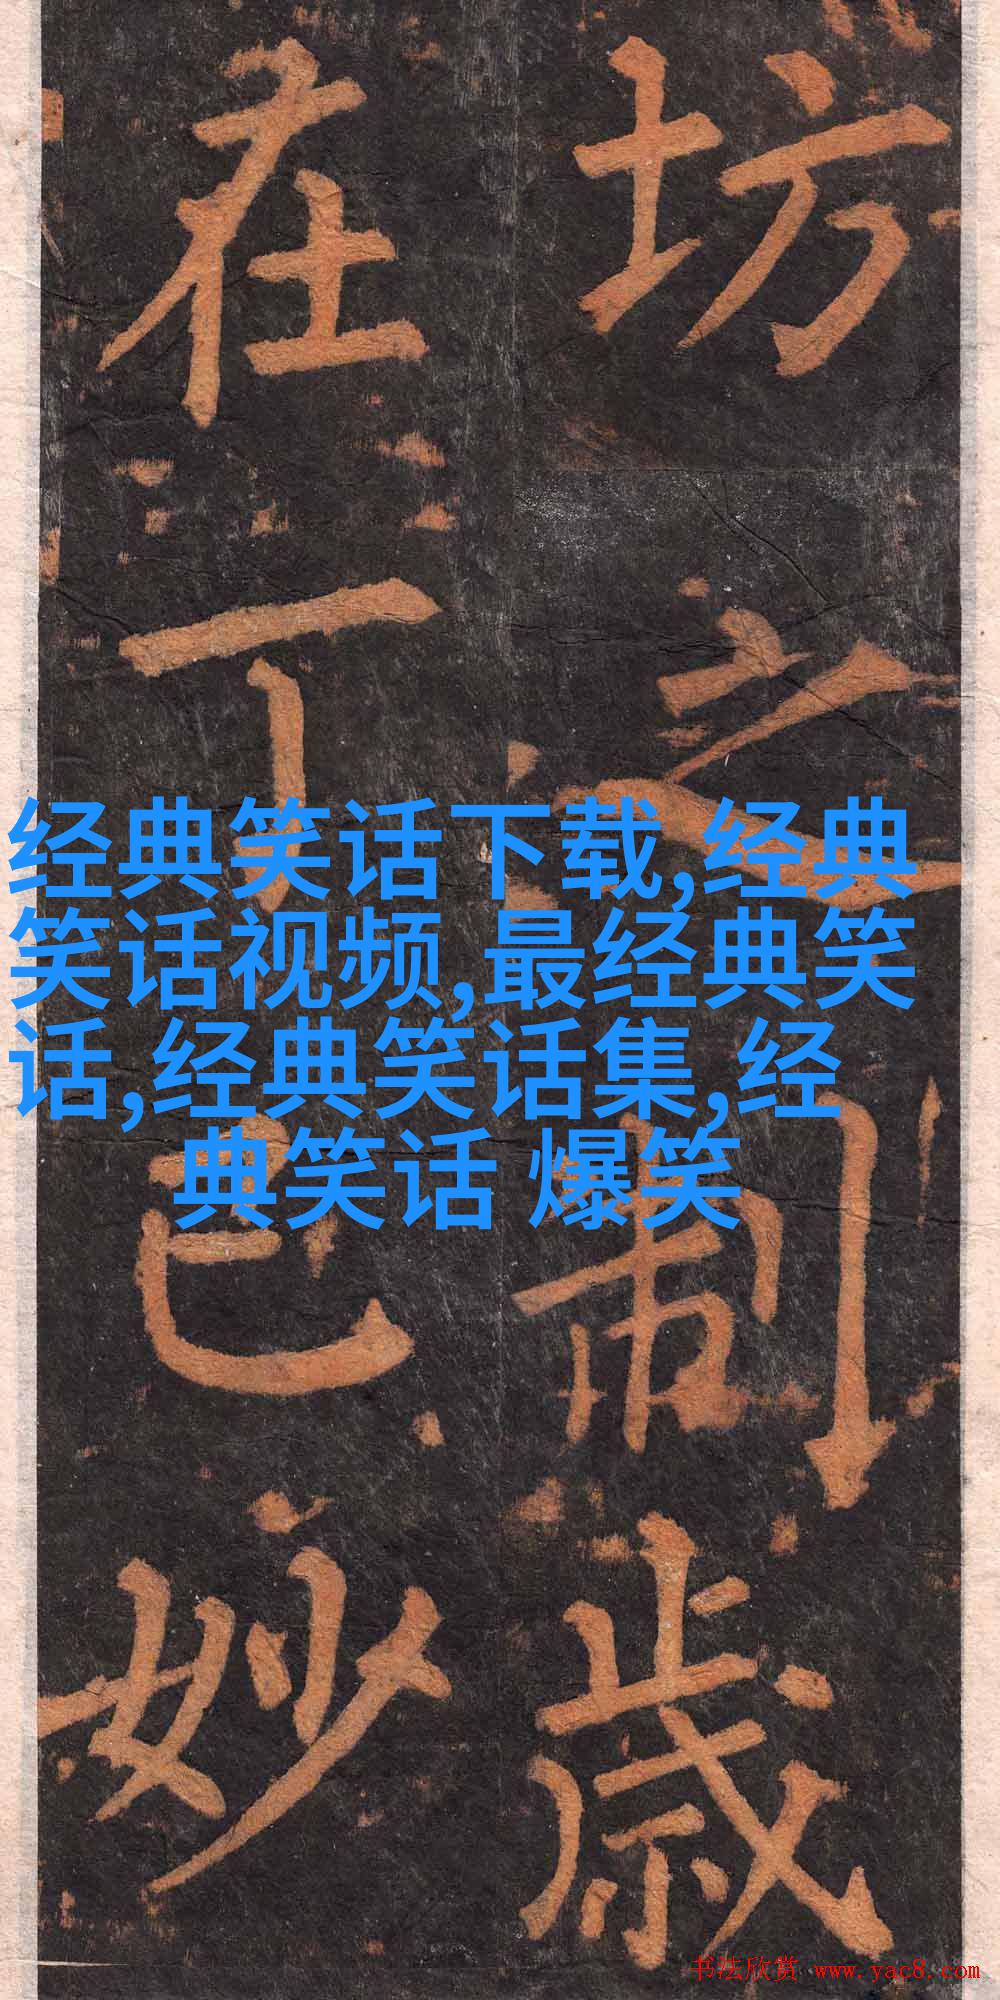 坊之制歲
在丁巳妙
经典笑话下载,经典
笑话视频,最经典笑
话,经典笑话集,经
典笑话 爆笑
书法欣赏 www.yac8.com